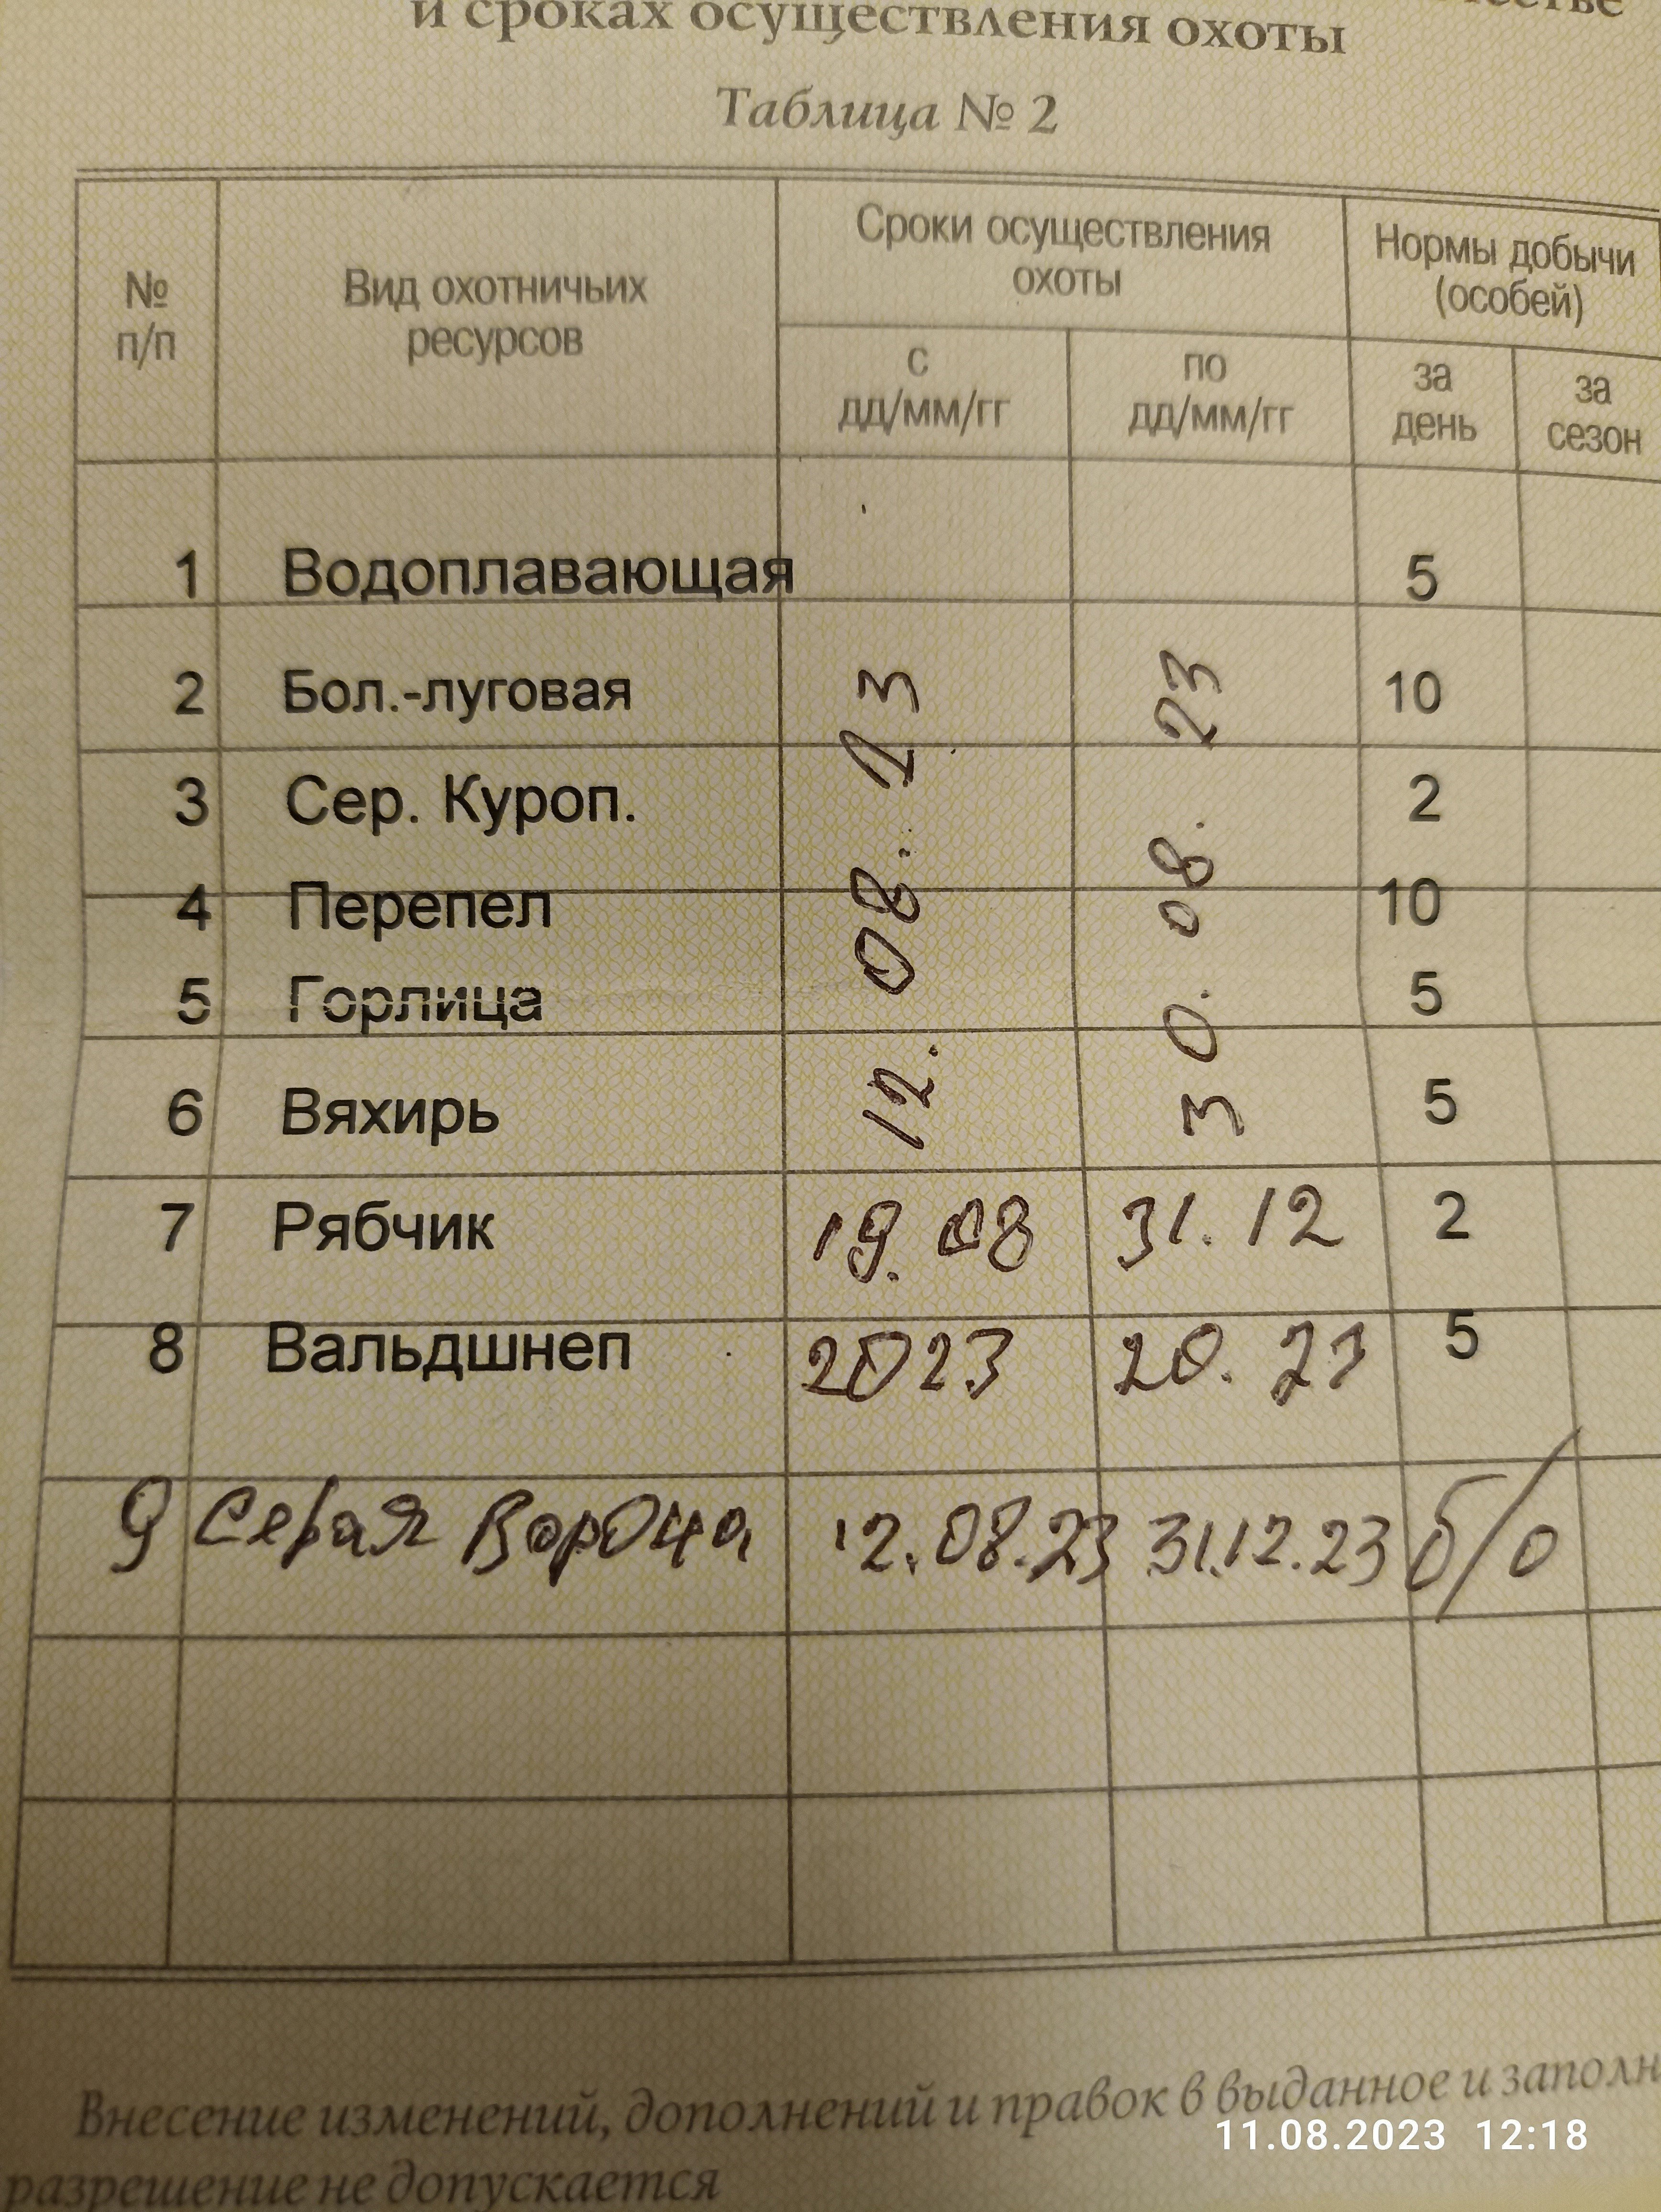 и сроках осуществления охоты
Таблица № 2
№ п/п
Вид охотничьих ресурсов
Сроки осуществления охоты
Нормы добычи (особей)
с дд/мм/гг
по дд/мм/гг
за день
за сезон
1 Водоплавающая 5
2 Бол.-луговая 10
3 Сер. Куроп. 2
4 Перепел 10
5 Горлица 5
6 Вяхирь 5
12.08.23
30.08.23
7 Рябчик 19.08 31.12 2
8 Вальдшнеп 2023 20. 5
9 Серая Ворона 12.08.23 31.12.23 б/о
Внесение изменений, дополнений и правок в выданное и заполн
разрешение не допускается
11.08.2023 12:18